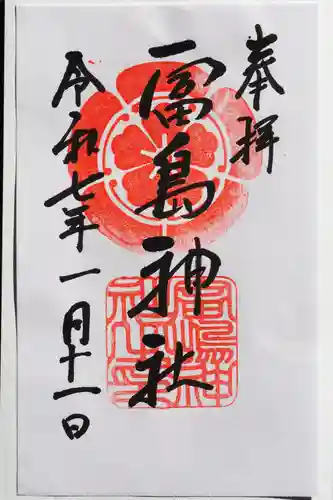 奉拝
冨島神社
令和七年一月十一日